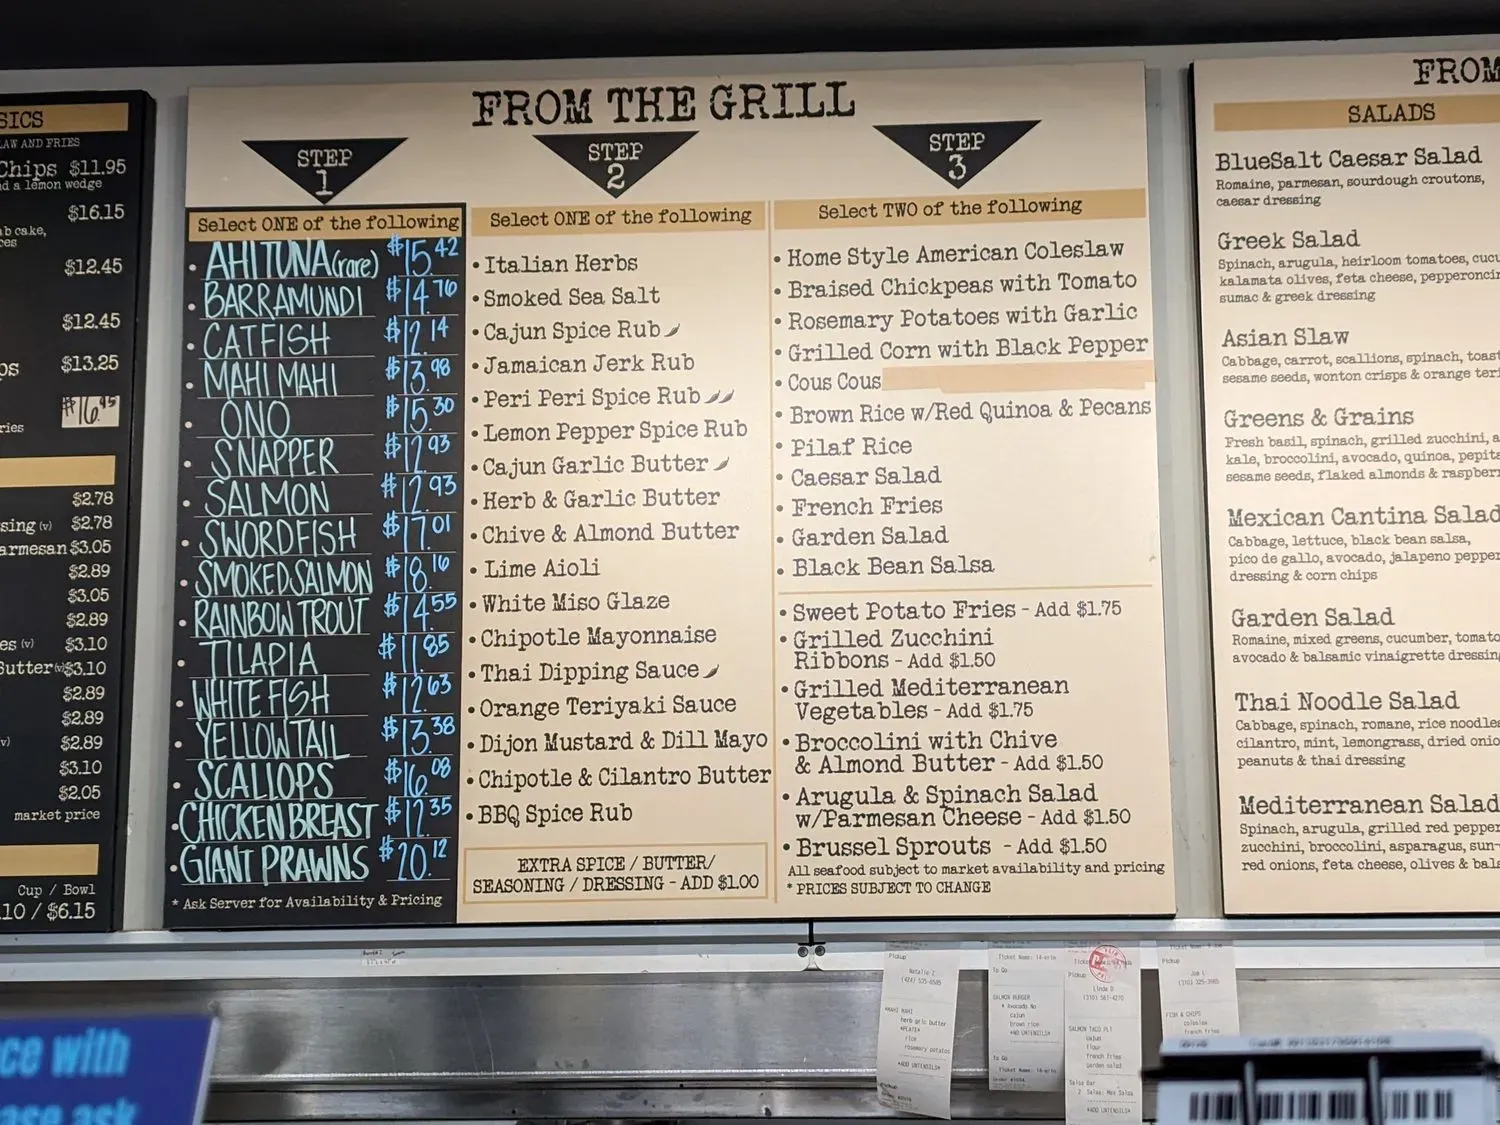 SICS
LAW AND FRIES
Chips $11.95
nd a lemon wedge
$16.15
b cake,
ces
$12.45
$12.45
ps $13.25
$16.95
ries
$2.78
sing (v) $2.78
armesan $3.05
$2.89
$3.05
$2.89
es (v) $3.10
Butter (v) $3.10
$2.89
$2.89
v) $2.89
$3.10
$2.05
market price
Cup / Bowl
.10 / $6.15
FROM THE GRILL
STEP
1
Select ONE of the following
• AHI TUNA (rare) $15.42
• BARRAMUNDI $14.76
• CATFISH $12.14
• MAHI MAHI $13.98
• ONO $15.30
• SNAPPER $12.93
• SALMON $12.93
• SWORDFISH $17.01
• SMOKED SALMON $18.16
• RAINBOW TROUT $14.55
• TILAPIA $11.85
• WHITE FISH $12.63
• YELLOWTAIL $13.38
• SCALLOPS $16.08
• CHICKEN BREAST $12.35
• GIANT PRAWNS $20.12
* Ask Server for Availability & Pricing
STEP
2
Select ONE of the following
• Italian Herbs
• Smoked Sea Salt
• Cajun Spice Rub
• Jamaican Jerk Rub
• Peri Peri Spice Rub
• Lemon Pepper Spice Rub
• Cajun Garlic Butter
• Herb & Garlic Butter
• Chive & Almond Butter
• Lime Aioli
• White Miso Glaze
• Chipotle Mayonnaise
• Thai Dipping Sauce
• Orange Teriyaki Sauce
• Dijon Mustard & Dill Mayo
• Chipotle & Cilantro Butter
• BBQ Spice Rub
EXTRA SPICE / BUTTER/
SEASONING / DRESSING - ADD $1.00
STEP
3
Select TWO of the following
• Home Style American Coleslaw
• Braised Chickpeas with Tomato
• Rosemary Potatoes with Garlic
• Grilled Corn with Black Pepper
• Cous Cous
• Brown Rice w/Red Quinoa & Pecans
• Pilaf Rice
• Caesar Salad
• French Fries
• Garden Salad
• Black Bean Salsa
• Sweet Potato Fries - Add $1.75
• Grilled Zucchini
Ribbons - Add $1.50
• Grilled Mediterranean
Vegetables - Add $1.75
• Broccolini with Chive
& Almond Butter - Add $1.50
• Arugula & Spinach Salad
w/Parmesan Cheese - Add $1.50
• Brussel Sprouts - Add $1.50
All seafood subject to market availability and pricing
* PRICES SUBJECT TO CHANGE
FROM
SALADS
BlueSalt Caesar Salad
Romaine, parmesan, sourdough croutons,
caesar dressing
Greek Salad
Spinach, arugula, heirloom tomatoes, cucu
kalamata olives, feta cheese, pepperoncin
sumac & greek dressing
Asian Slaw
Cabbage, carrot, scallions, spinach, toast
sesame seeds, wonton crisps & orange teri
Greens & Grains
Fresh basil, spinach, grilled zucchini, a
kale, broccolini, avocado, quinoa, pepita
sesame seeds, flaked almonds & raspberr
Mexican Cantina Salad
Cabbage, lettuce, black bean salsa,
pico de gallo, avocado, jalapeno pepper
dressing & corn chips
Garden Salad
Romaine, mixed greens, cucumber, tomato
avocado & balsamic vinaigrette dressing
Thai Noodle Salad
Cabbage, spinach, romane, rice noodles
cilantro, mint, lemongrass, dried onio
peanuts & thai dressing
Mediterranean Salad
Spinach, arugula, grilled red pepper
zucchini, broccolini, asparagus, sun-
red onions, feta cheese, olives & bals
Pickup
Natalie Z
(424) 535-6585
*MAHI MAHI
herb grlc butter
*PLATE*
rice
rosemary potatos
*ADD UTENSILS*
Ticket Name: 14-erin
To Go
SALMON BURGER
* Avocado No
cajun
brown rice
*NO UTENSILS*
To Go
Ticket Name: 14-erin
Pickup
Linda D
(310) 561-4270
SALMON TACO PLT
cajun
flour
french fries
garden salad
Salsa Bar
2 Salsa: Mex Salsa
*ADD UTENSILS*
Pickup
Joe L
(310) 325-3985
FISH & CHIPS
coleslaw
french fries
ce with
ase ask